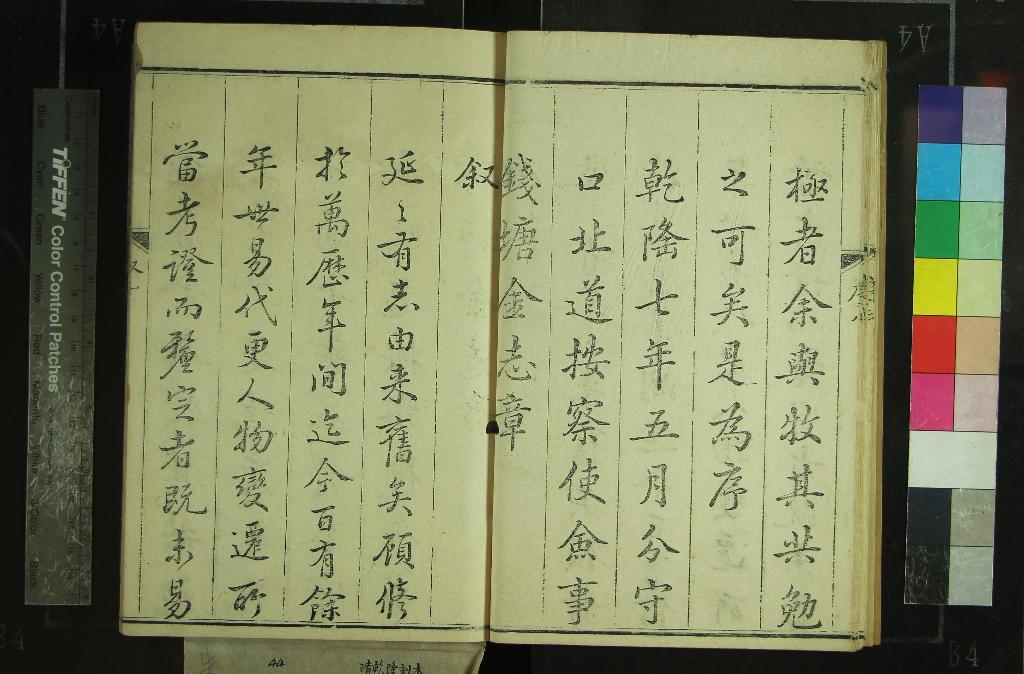 極者余與牧其共勉
之可矣是為序
乾隆七年五月分守
口北道按察使僉事
錢塘金志章
叙
延〻有志由来舊矣顧修
於萬歷年間迄今百有餘
年世易代更人物變遷所
當考證而釐定者既未易
TIFFEN Color Control Patches
Blue
Cyan
Green
Yellow
Red
Magenta
White
3/Color
Black
A4
A4
B4
B4
44
清乾隆刻本